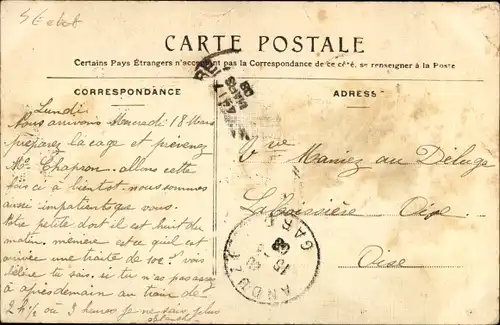 CARTE POSTALE
Certains Pays Étrangers n'acceptent pas la Correspondance de ce côté, se renseigner à la Poste
CORRESPONDANCE
ADRESSE
Lundi
Nous arrivons Mercredi 18 Mars
préparez la cage et prévenez
Mr Chapron. allons cette
fois ci à bientôt nous sommes
aussi impatient que vous.
Notre petite dort il est huit du
matin, mémère est ce quel est
arrivée une traite de 10c? vois
Valère tu sais. si tu n'as pas assez
à après demain au train de
2 h ½ où 3 heures je ne sais plus
Vve Maniez au Déluge
Laboissière Oise
Oise
ANDUZE
GARD
15
08
MARS
08